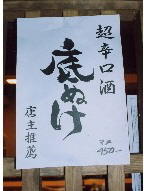 超辛口酒
底ぬけ
店主推薦